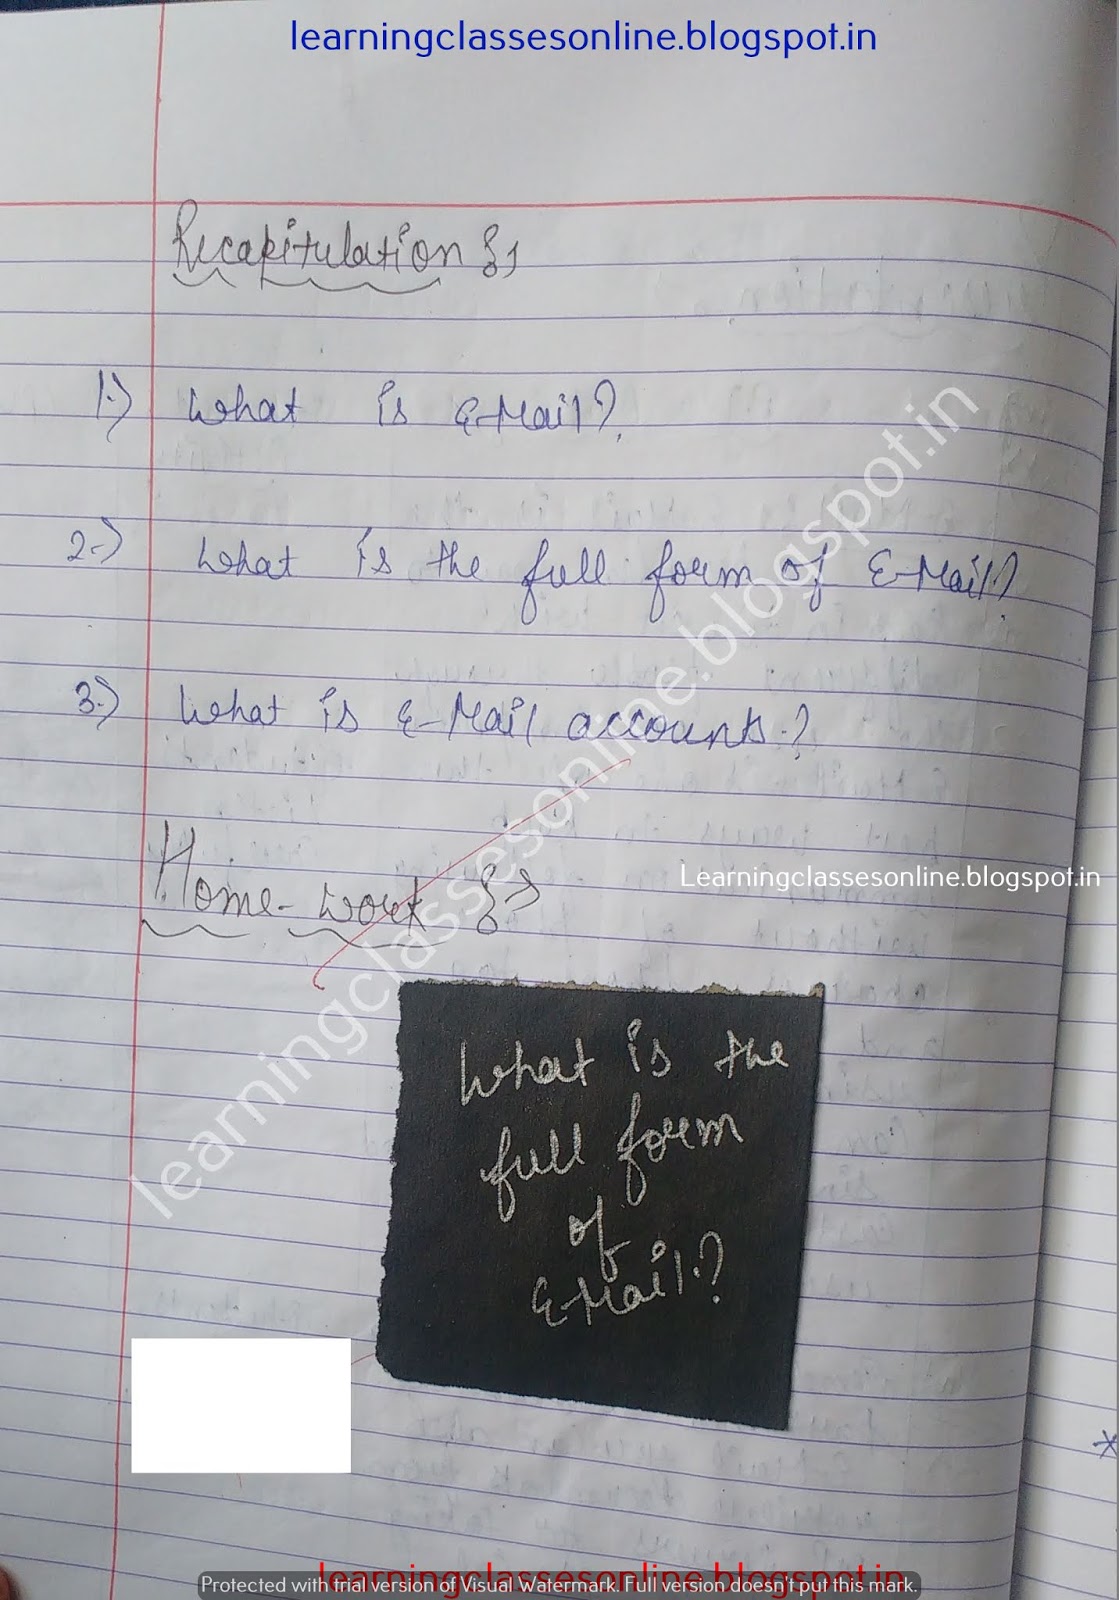 learningclassesonline.blogspot.in
Recapitulation :-
1.) What is E-Mail?
2.) What is the full form of E-Mail?
3.) What is E-Mail accounts?
Home-work :-
Learningclassesonline.blogspot.in
learningclassesonline.blogspot.in
What is the
full form
of
E-Mail?
learningclassesonline.blogspot.in
Protected with trial version of Visual Watermark. Full version doesn't put this mark.